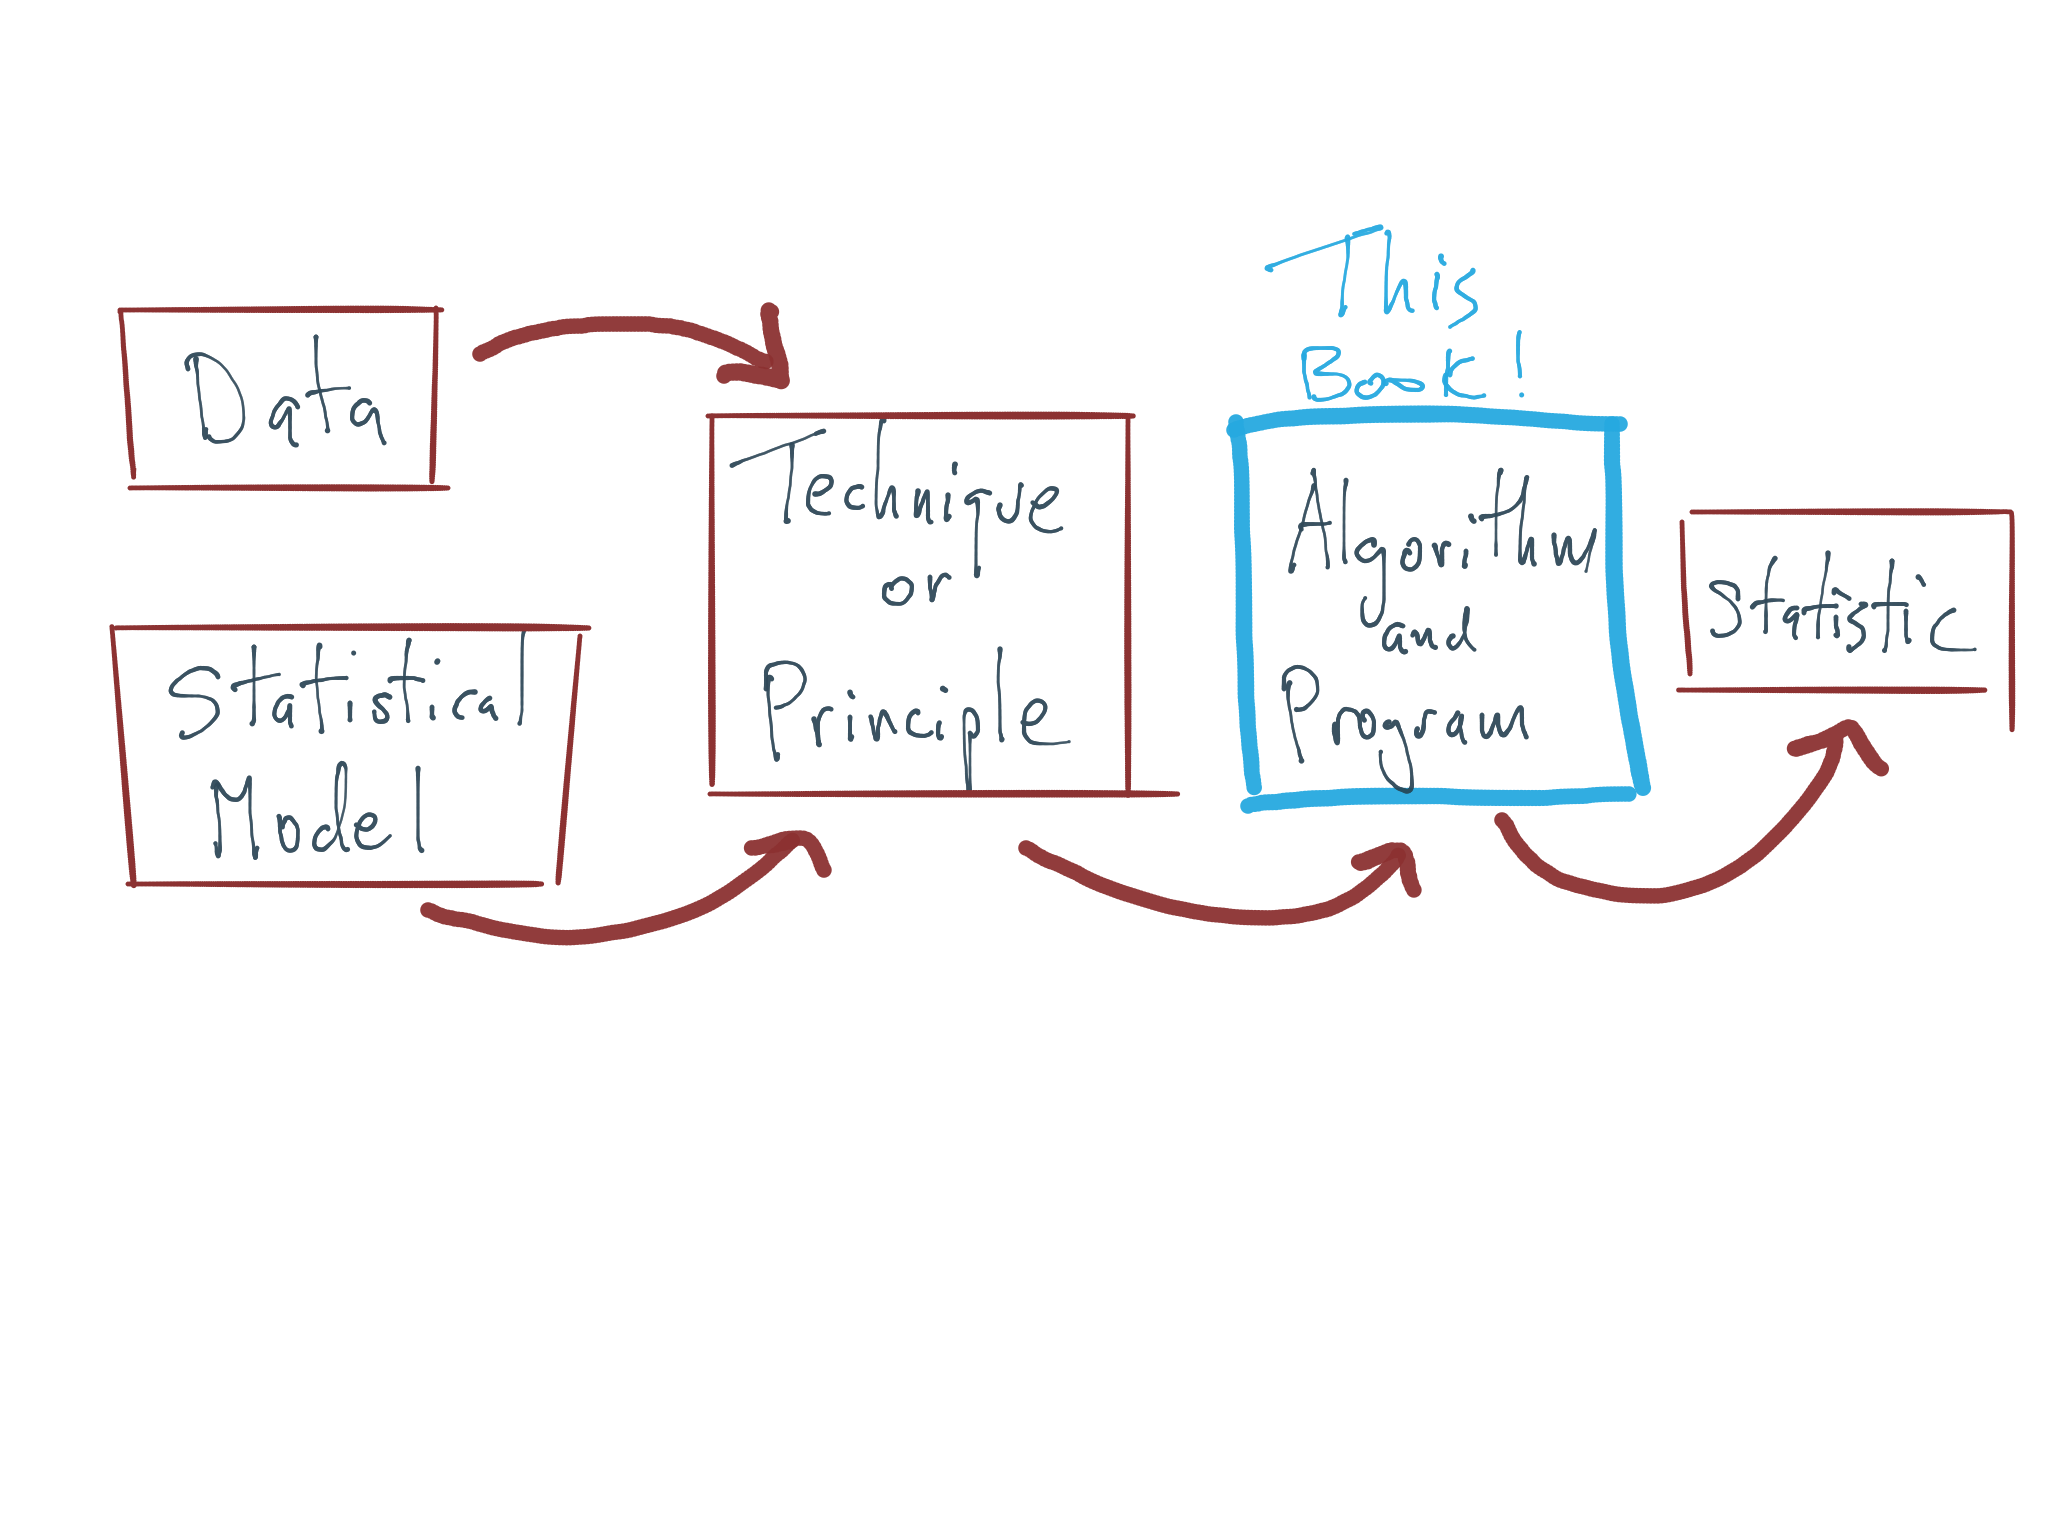 Data
Statistical
Model
Technique
or
Principle
This
Book!
Algorithm
and
Program
Statistic